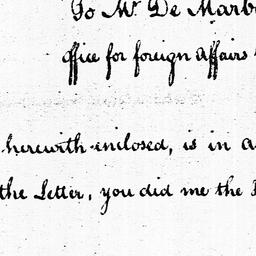 To Mr. De Marb
office for foreign affairs
herewith enclosed, is in a
the Letter, you did me the